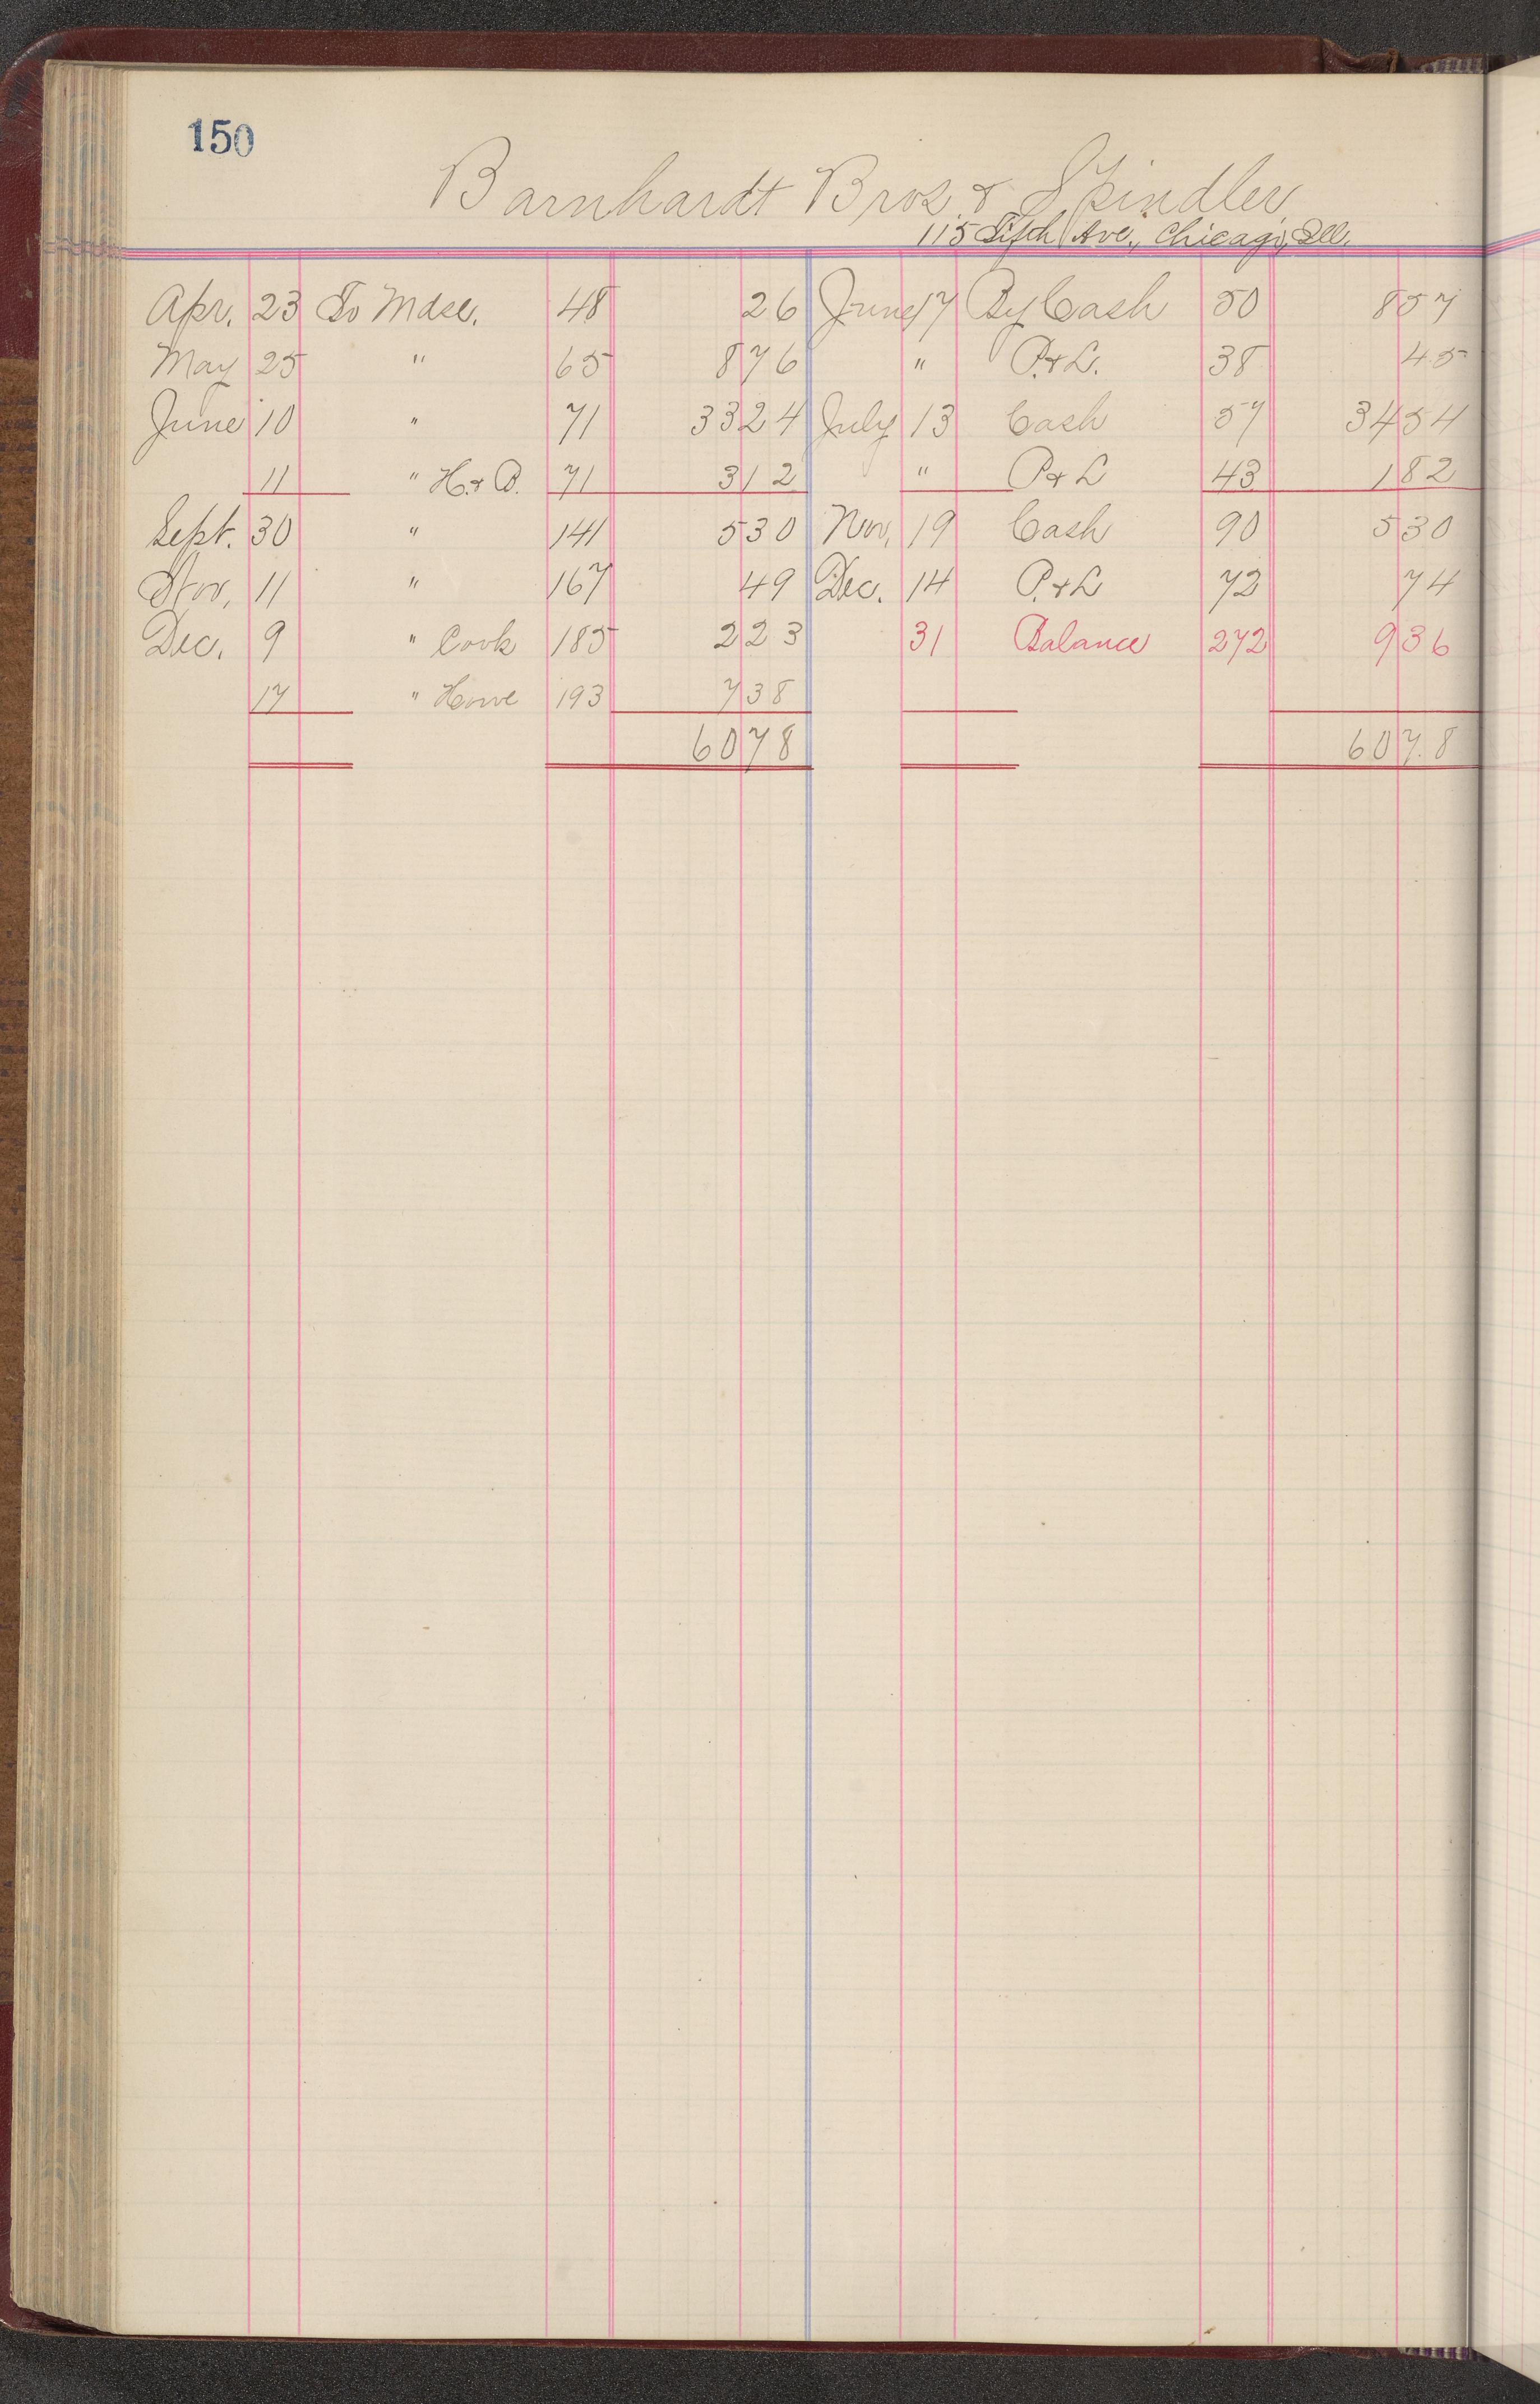 150
Barnhardt Bros. & Spindler
115 Fifth Ave., Chicago, Ill.
Apr. 23 To Mdse. 48 26 June 17 By Cash 50 857
May 25 " 65 876 " P.&L. 38 45
June 10 " 71 3324 July 13 Cash 57 3454
11 " H.&B. 71 312 " P&L 43 182
Sept. 30 " 141 530 Nov. 19 Cash 90 530
Nov. 11 " 167 49 Dec. 14 P.&L 72 74
Dec. 9 " Cook 185 223 31 Balance 272 936
17 " Howe 193 738
6078 6078